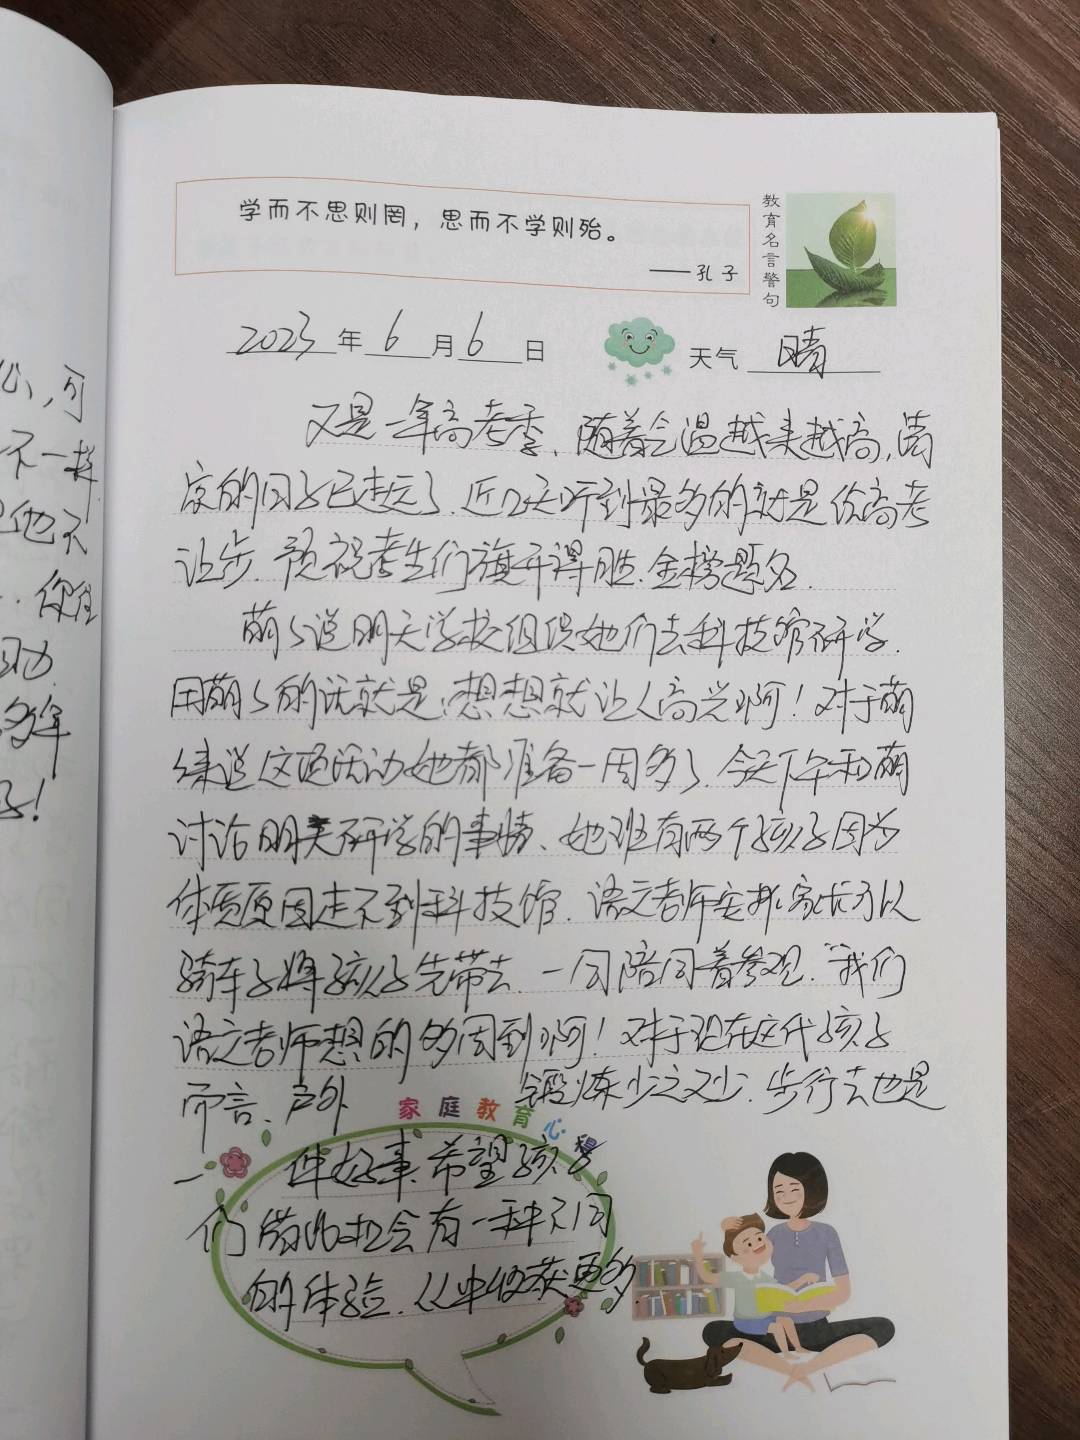 学而不思则罔，思而不学则殆。
——孔子
教育名言警句
2023年6月6日
天气 晴
又是一年高考季、随着气温越来越高,离
家的日子已走远了.近几天听到最多的就是给高考
让步.预祝考生们旗开得胜.金榜题名.
萌萌说明天学校组织她们去科技馆研学.
用萌萌的话就是,想想就让人高兴啊!对于萌
萌来说这项活动她都准备一周多了.今天下午和萌
讨论明天研学的事情、她班有两个孩子因为
体质原因走不到科技馆.语文老师安排家长可以
骑车子将孩子先带去.一同陪同着参观."我们
语文老师想的多周到啊!对于现在这代孩子
而言、户外锻炼少之又少.步行去也是
家庭教育心得
一件好事.希望孩子
们借此机会有一种不同
的体验.从中收获更多
心,可
不一样
他不
助
多年
!